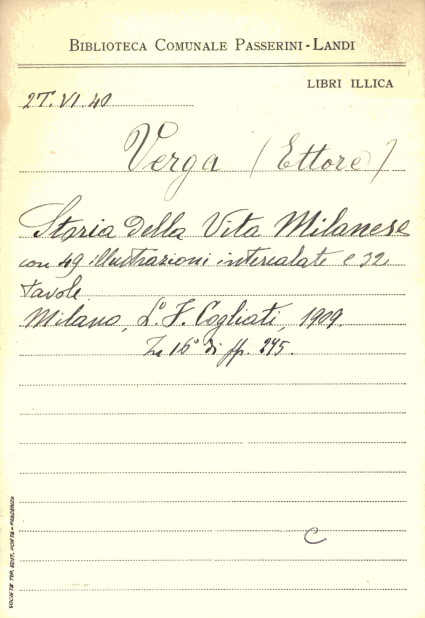 BIBLIOTECA COMUNALE PASSERINI-LANDI
LIBRI ILLICA
27.VI.40
Verga (Ettore)
Storia della Vita Milanese
con 49 illustrazioni intercalate e 32
tavole
Milano, L. F. Cogliati, 1909.
In 16° di pp. 245.
C
SOCIETÀ TIP. EDIT. PORTA - PIACENZA